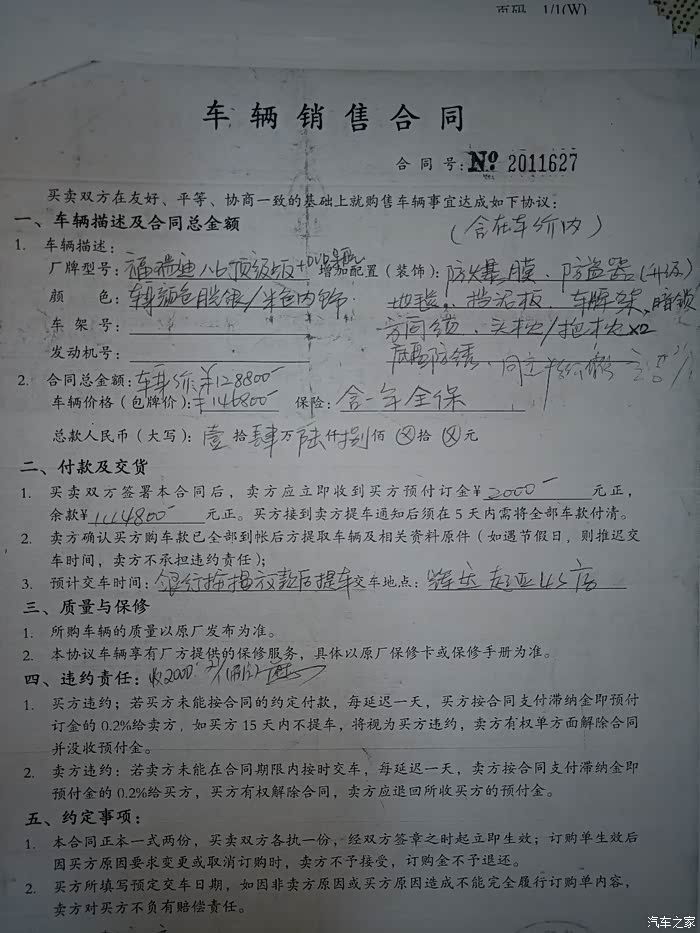 页码 1/1(W)
车辆销售合同
合同号: Nº 2011627
买卖双方在友好、平等、协商一致的基础上就购售车辆事宜达成如下协议:
一、车辆描述及合同总金额
(含在车价内)
1. 车辆描述:
厂牌型号: 福瑞迪 1.6 顶级版+DVD导航 增加配置(装饰): 防爆膜、防盗器(升级)
颜 色: 银/米色内饰 地毯、挡泥板、车牌架、暗锁
车 架 号: 方向锁、头枕/抱枕x2
发动机号: 底盘防锈、
2. 合同总金额: 车价:¥128800-
车辆价格(包牌价): ¥146800- 保险: 含一年全保
总款人民币(大写): 壹拾肆万陆仟捌佰⊗拾⊗元
二、付款及交货
1. 买卖双方签署本合同后,卖方应立即收到买方预付订金¥ 2000- 元正,
余款¥ 144800- 元正。买方接到卖方提车通知后须在5天内需将全部车款付清。
2. 卖方确认买方购车款已全部到帐后方提取车辆及相关资料原件(如遇节假日,则推迟交
车时间,卖方不承担违约责任);
3. 预计交车时间: 银行按揭放款后提车 交车地点: 起亚4S店
三、质量与保修
1. 所购车辆的质量以原厂发布为准。
2. 本协议车辆享有厂方提供的保修服务,具体以原厂保修卡或保修手册为准。
四、违约责任: 收2000.
1. 买方违约;若买方未能按合同的约定付款,每延迟一天,买方按合同支付滞纳金即预付
订金的0.2%给卖方,如买方15天内不提车,将视为买方违约,卖方有权单方面解除合同
并没收预付金。
2. 卖方违约:若卖方未能在合同期限内按时交车,每延迟一天,卖方按合同支付滞纳金即
预付金的0.2%给买方,买方有权解除合同,卖方应退回所收买方的预付金。
五、约定事项:
1. 本合同正本一式两份,买卖双方各执一份,经双方签章之时起立即生效;订购单生效后
因买方原因要求变更或取消订购时,卖方不予接受,订购金不予退还。
2. 买方所填写预定交车日期,如因非卖方原因或买方原因造成不能完全履行订购单内容,
卖方对买方不负有赔偿责任。
汽车之家